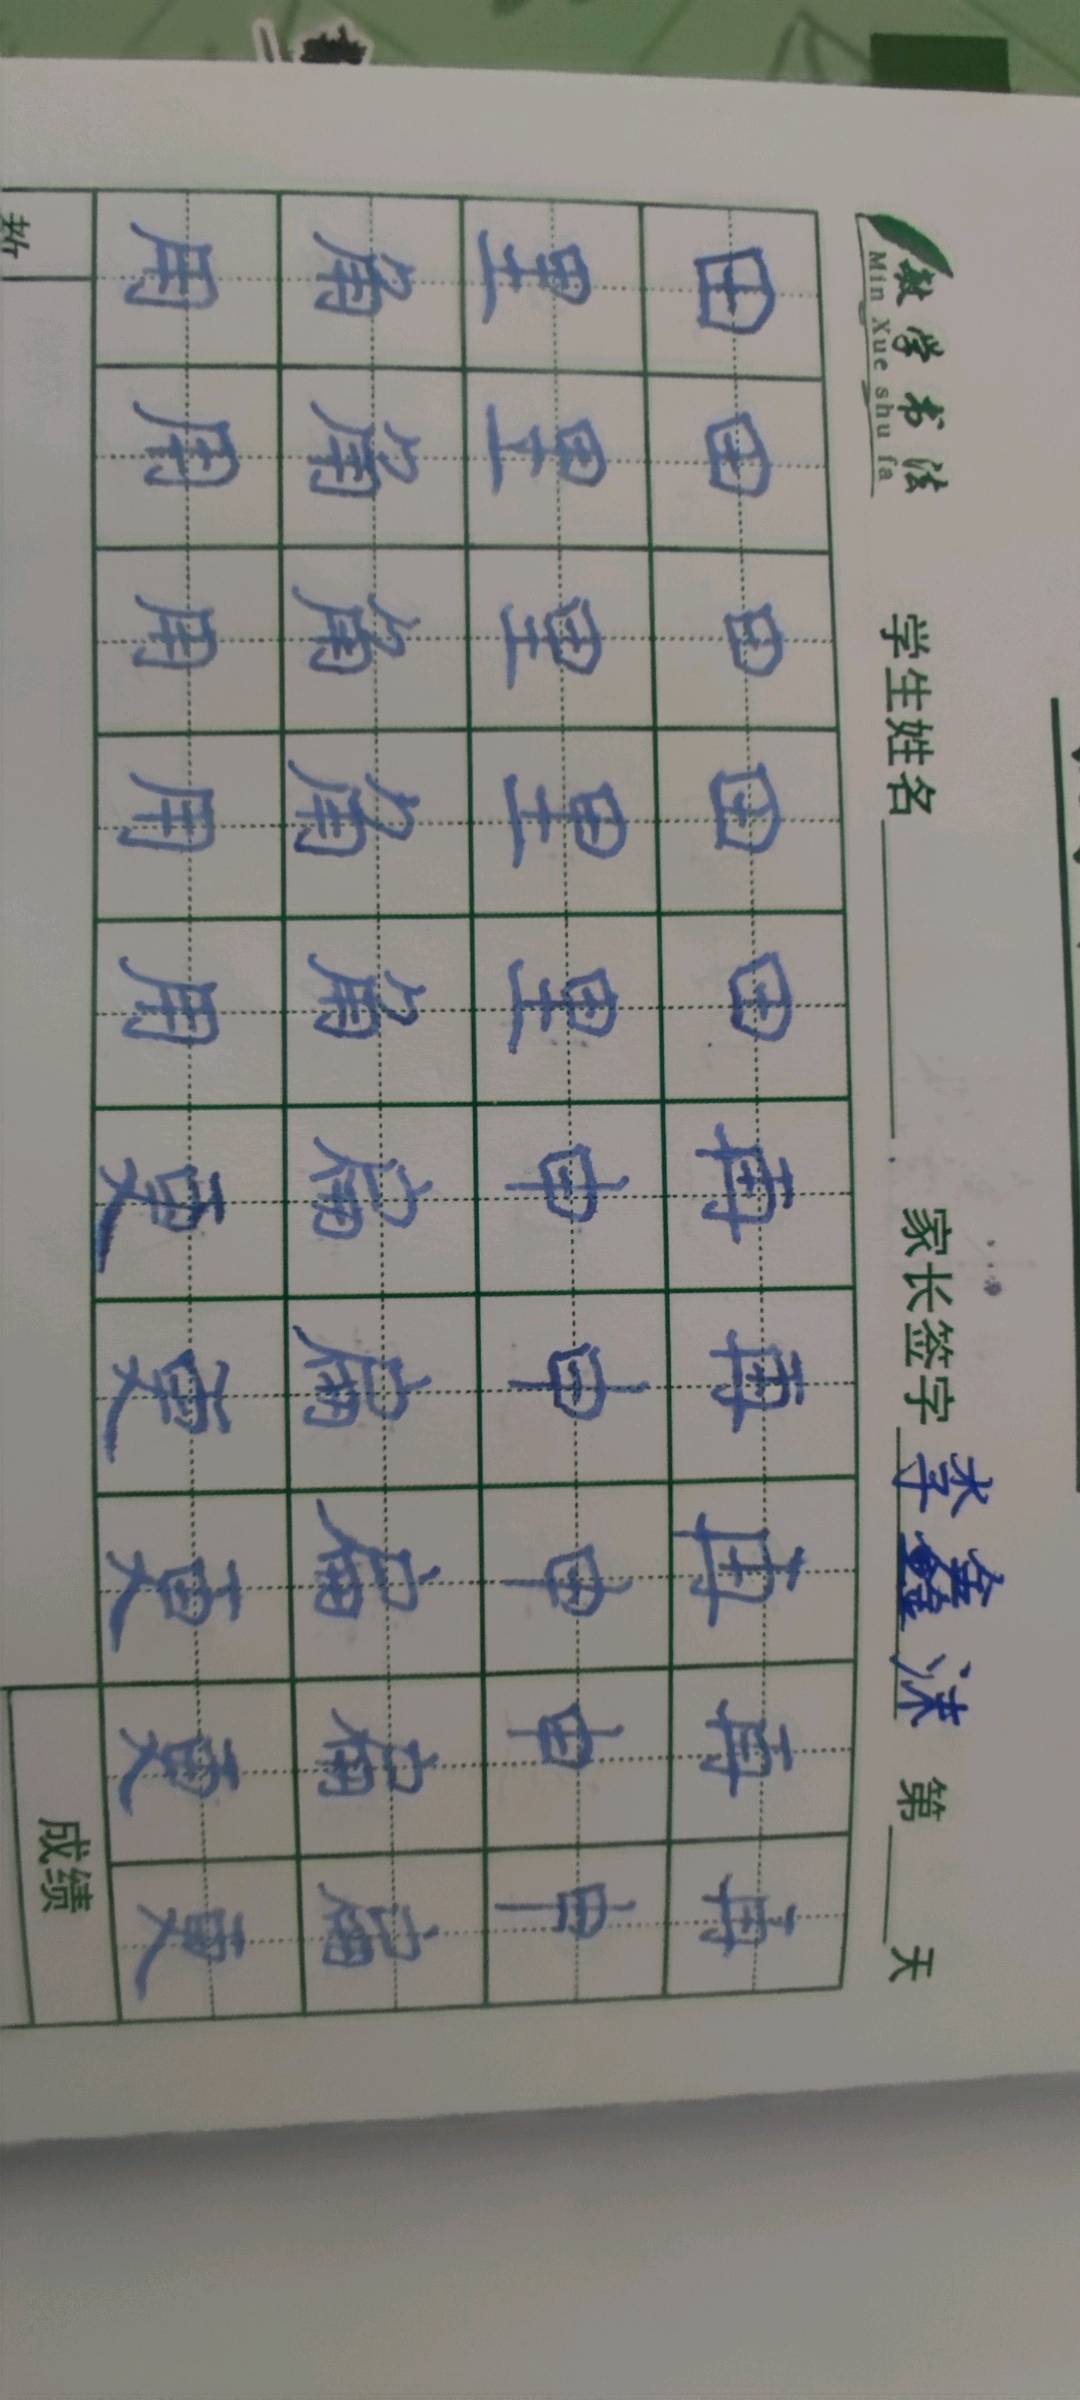 敏学书法 学生姓名 家长签字 李鑫沫 第 天
Min Xue shu fa
田田田田田再再再再再
里里里里里申申申申申
角角角角角扁扁扁扁扁
用用用用用更更更更更
成绩